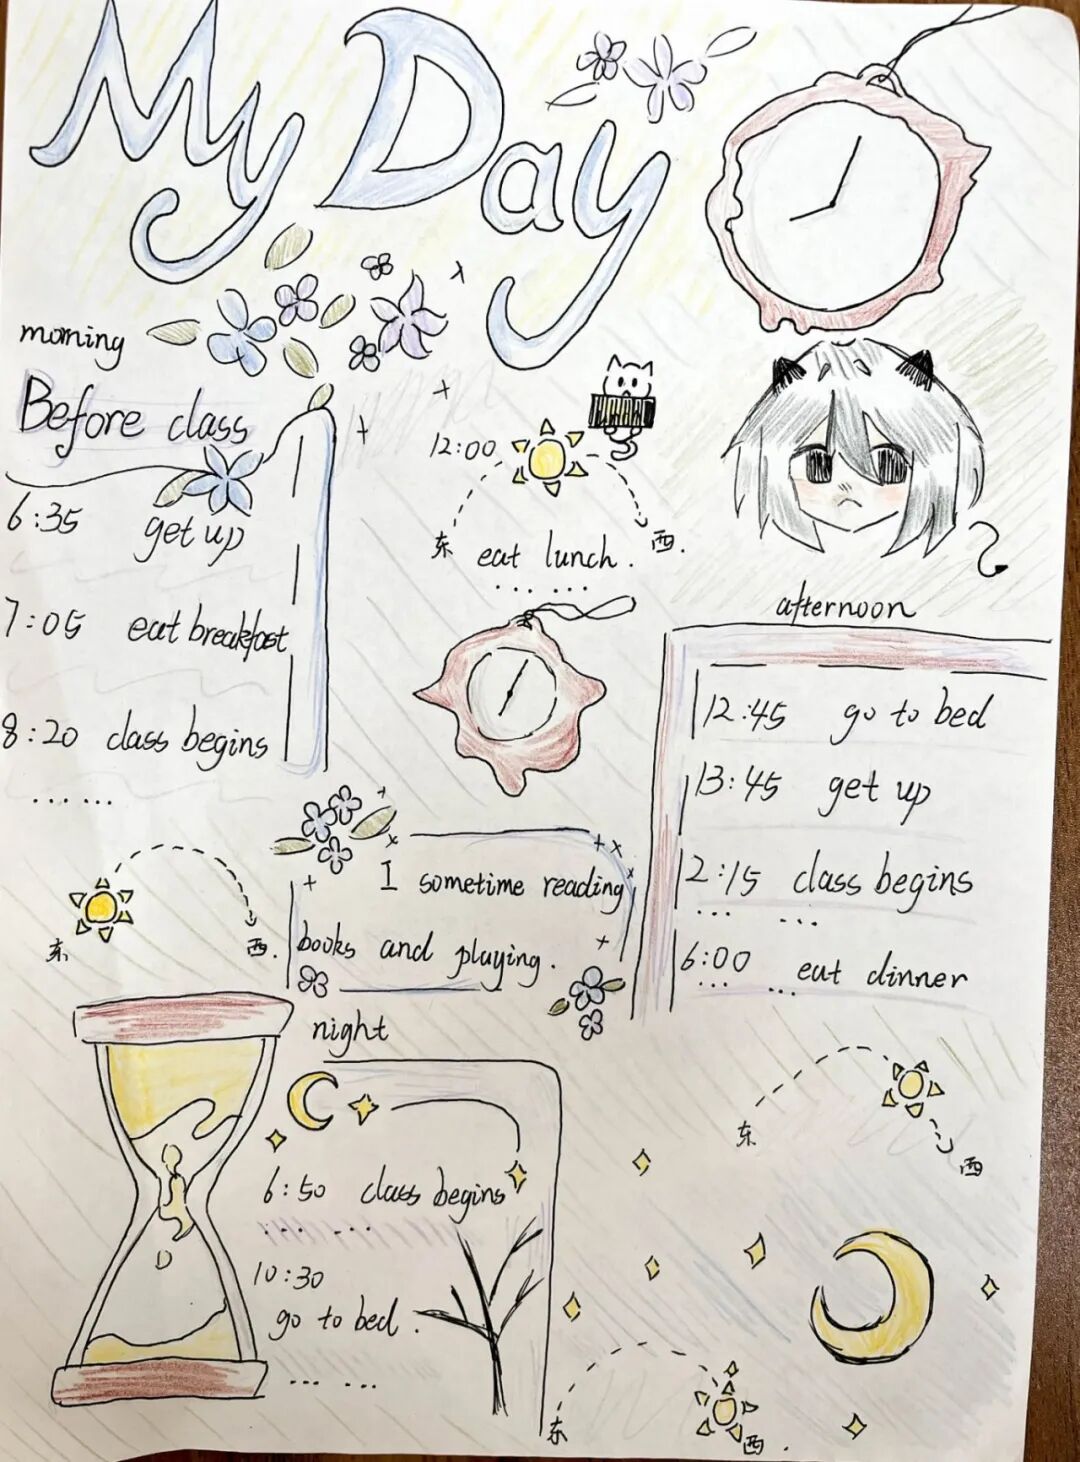 My Day
morning
Before class
6:35 get up
7:05 eat breakfast
8:20 class begins
... ...
12:00
东 西.
eat lunch.
... ...
afternoon
12:45 go to bed
13:45 get up
2:15 class begins
... ...
6:00 eat dinner
... ...
东 西.
I sometime reading
books and playing.
night
6:50 class begins
10:30
go to bed.
... ...
东 西
东 西.